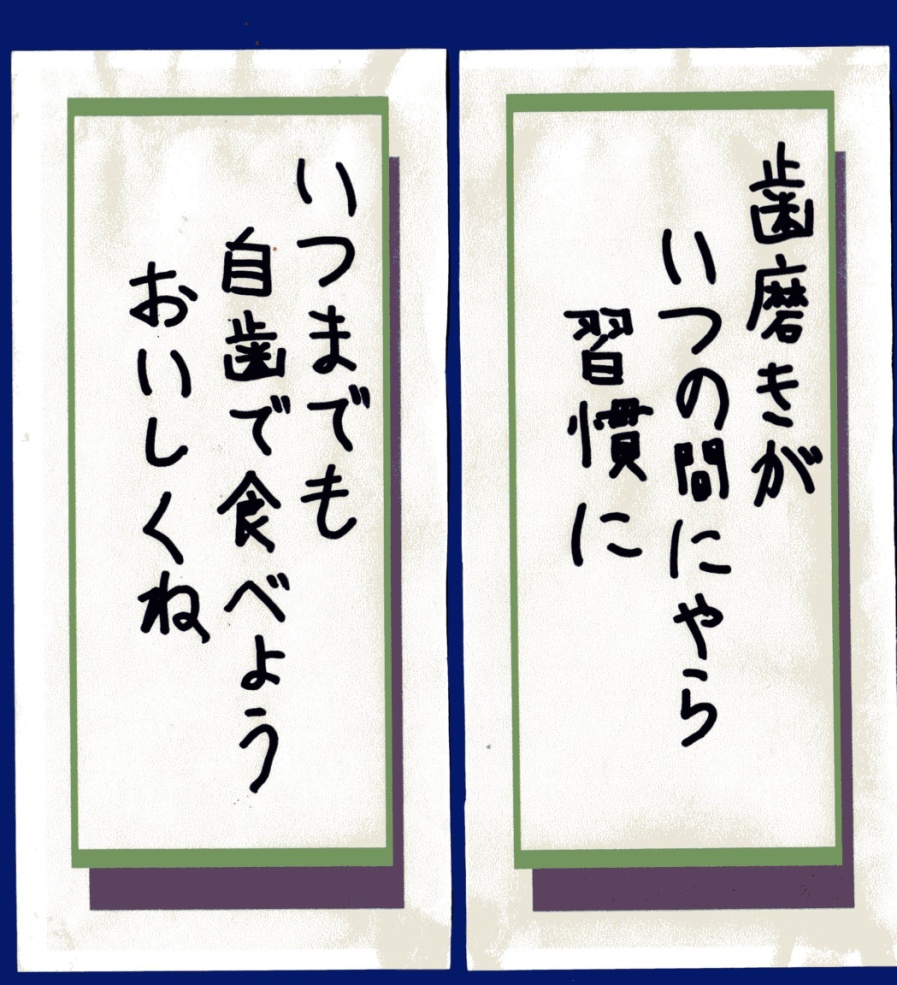 歯磨きが
いつの間にやら
習慣に
いつまでも
自歯で食べよう
おいしくね